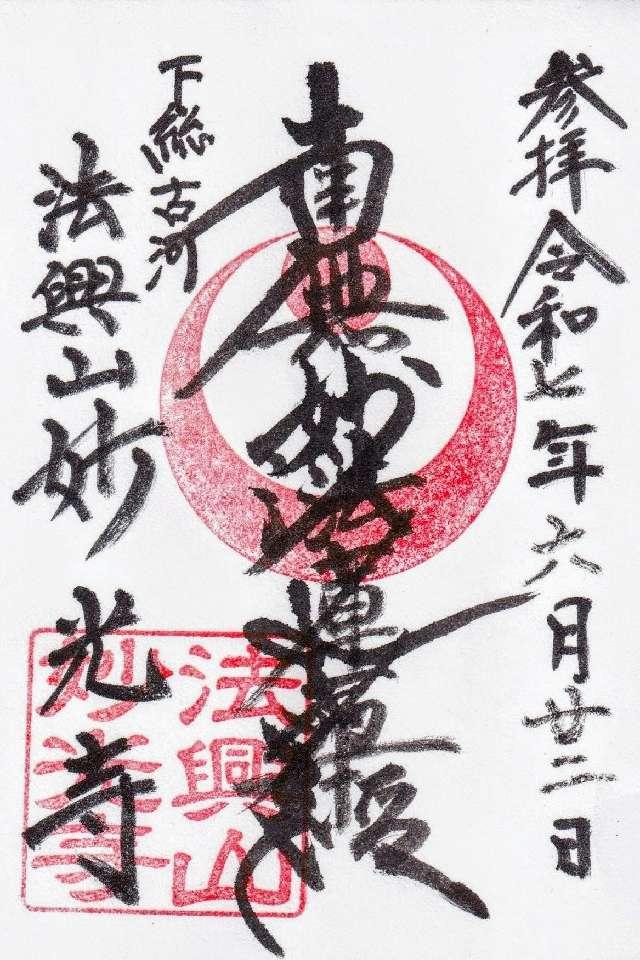 参拝 令和七年六月廿二日
南無妙法蓮華経
下総古河
法興山妙光寺
法興山